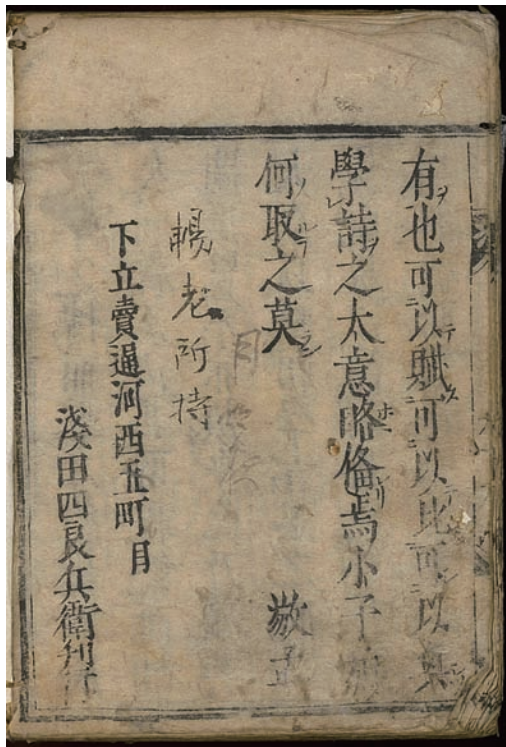 有也可以賦可以比可以
學詩之大意略偹焉小子
何取之莫
暢老所持
下立賣通河西五町目
淺田四良兵衛刋行